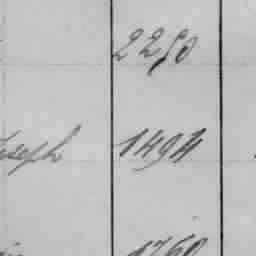 2250
Joseph 1494
1760